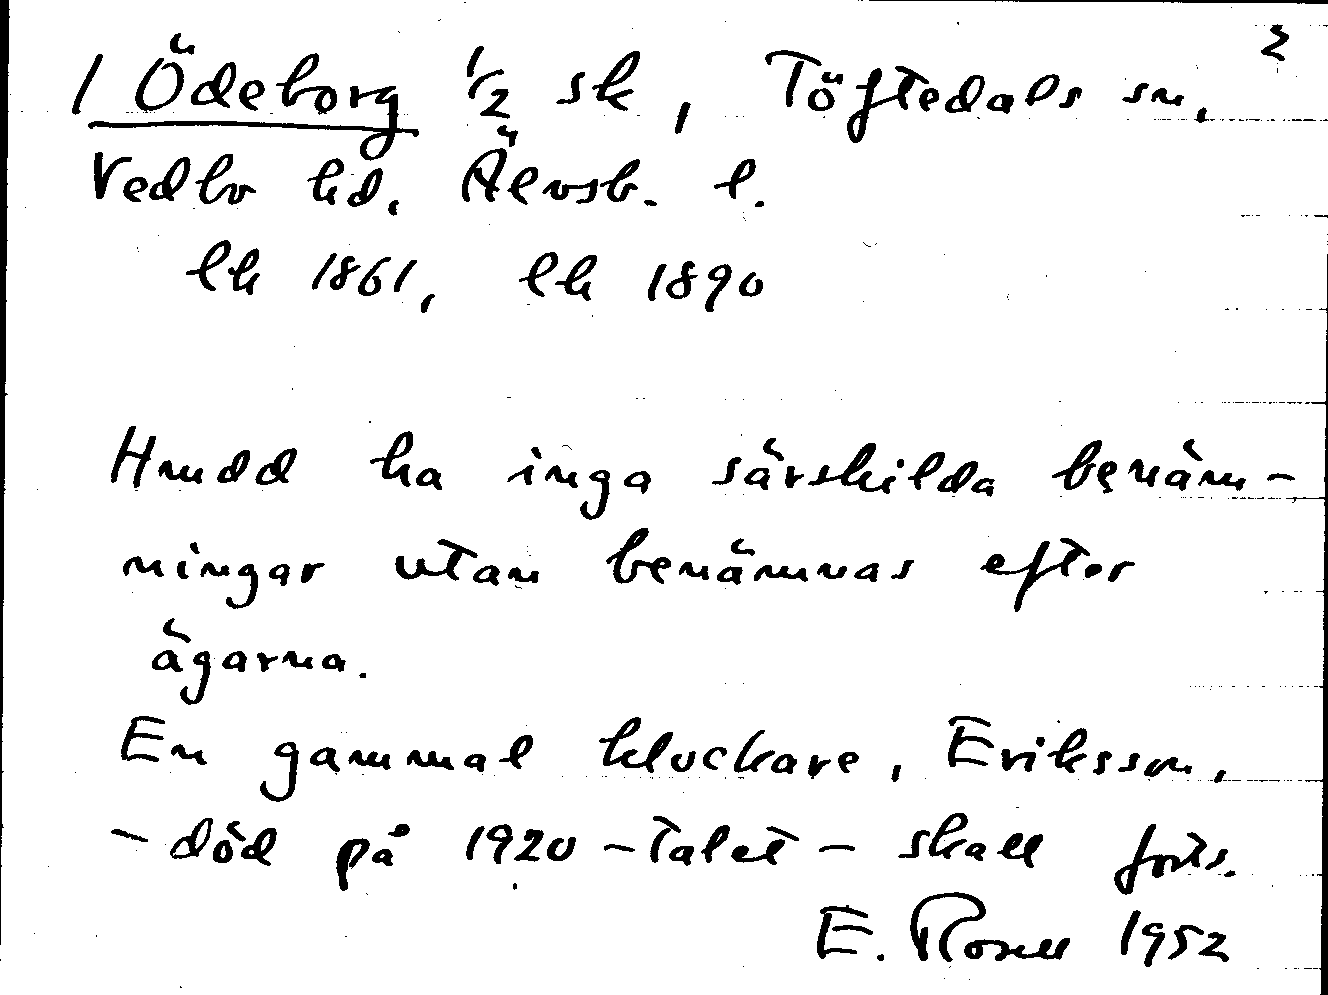 2
1 Ödeborg 1/2 sk, Töftedals sn,
Vedbo hd. Älvsb. l.
lk 1861, ek 1890
Hmdd ha inga särskilda benäm-
ningar utan benämnas efter
ägarna.
En gammal kluckare, Eriksson,
- död på 1920-talet - skall forts.
E. Rosell 1952